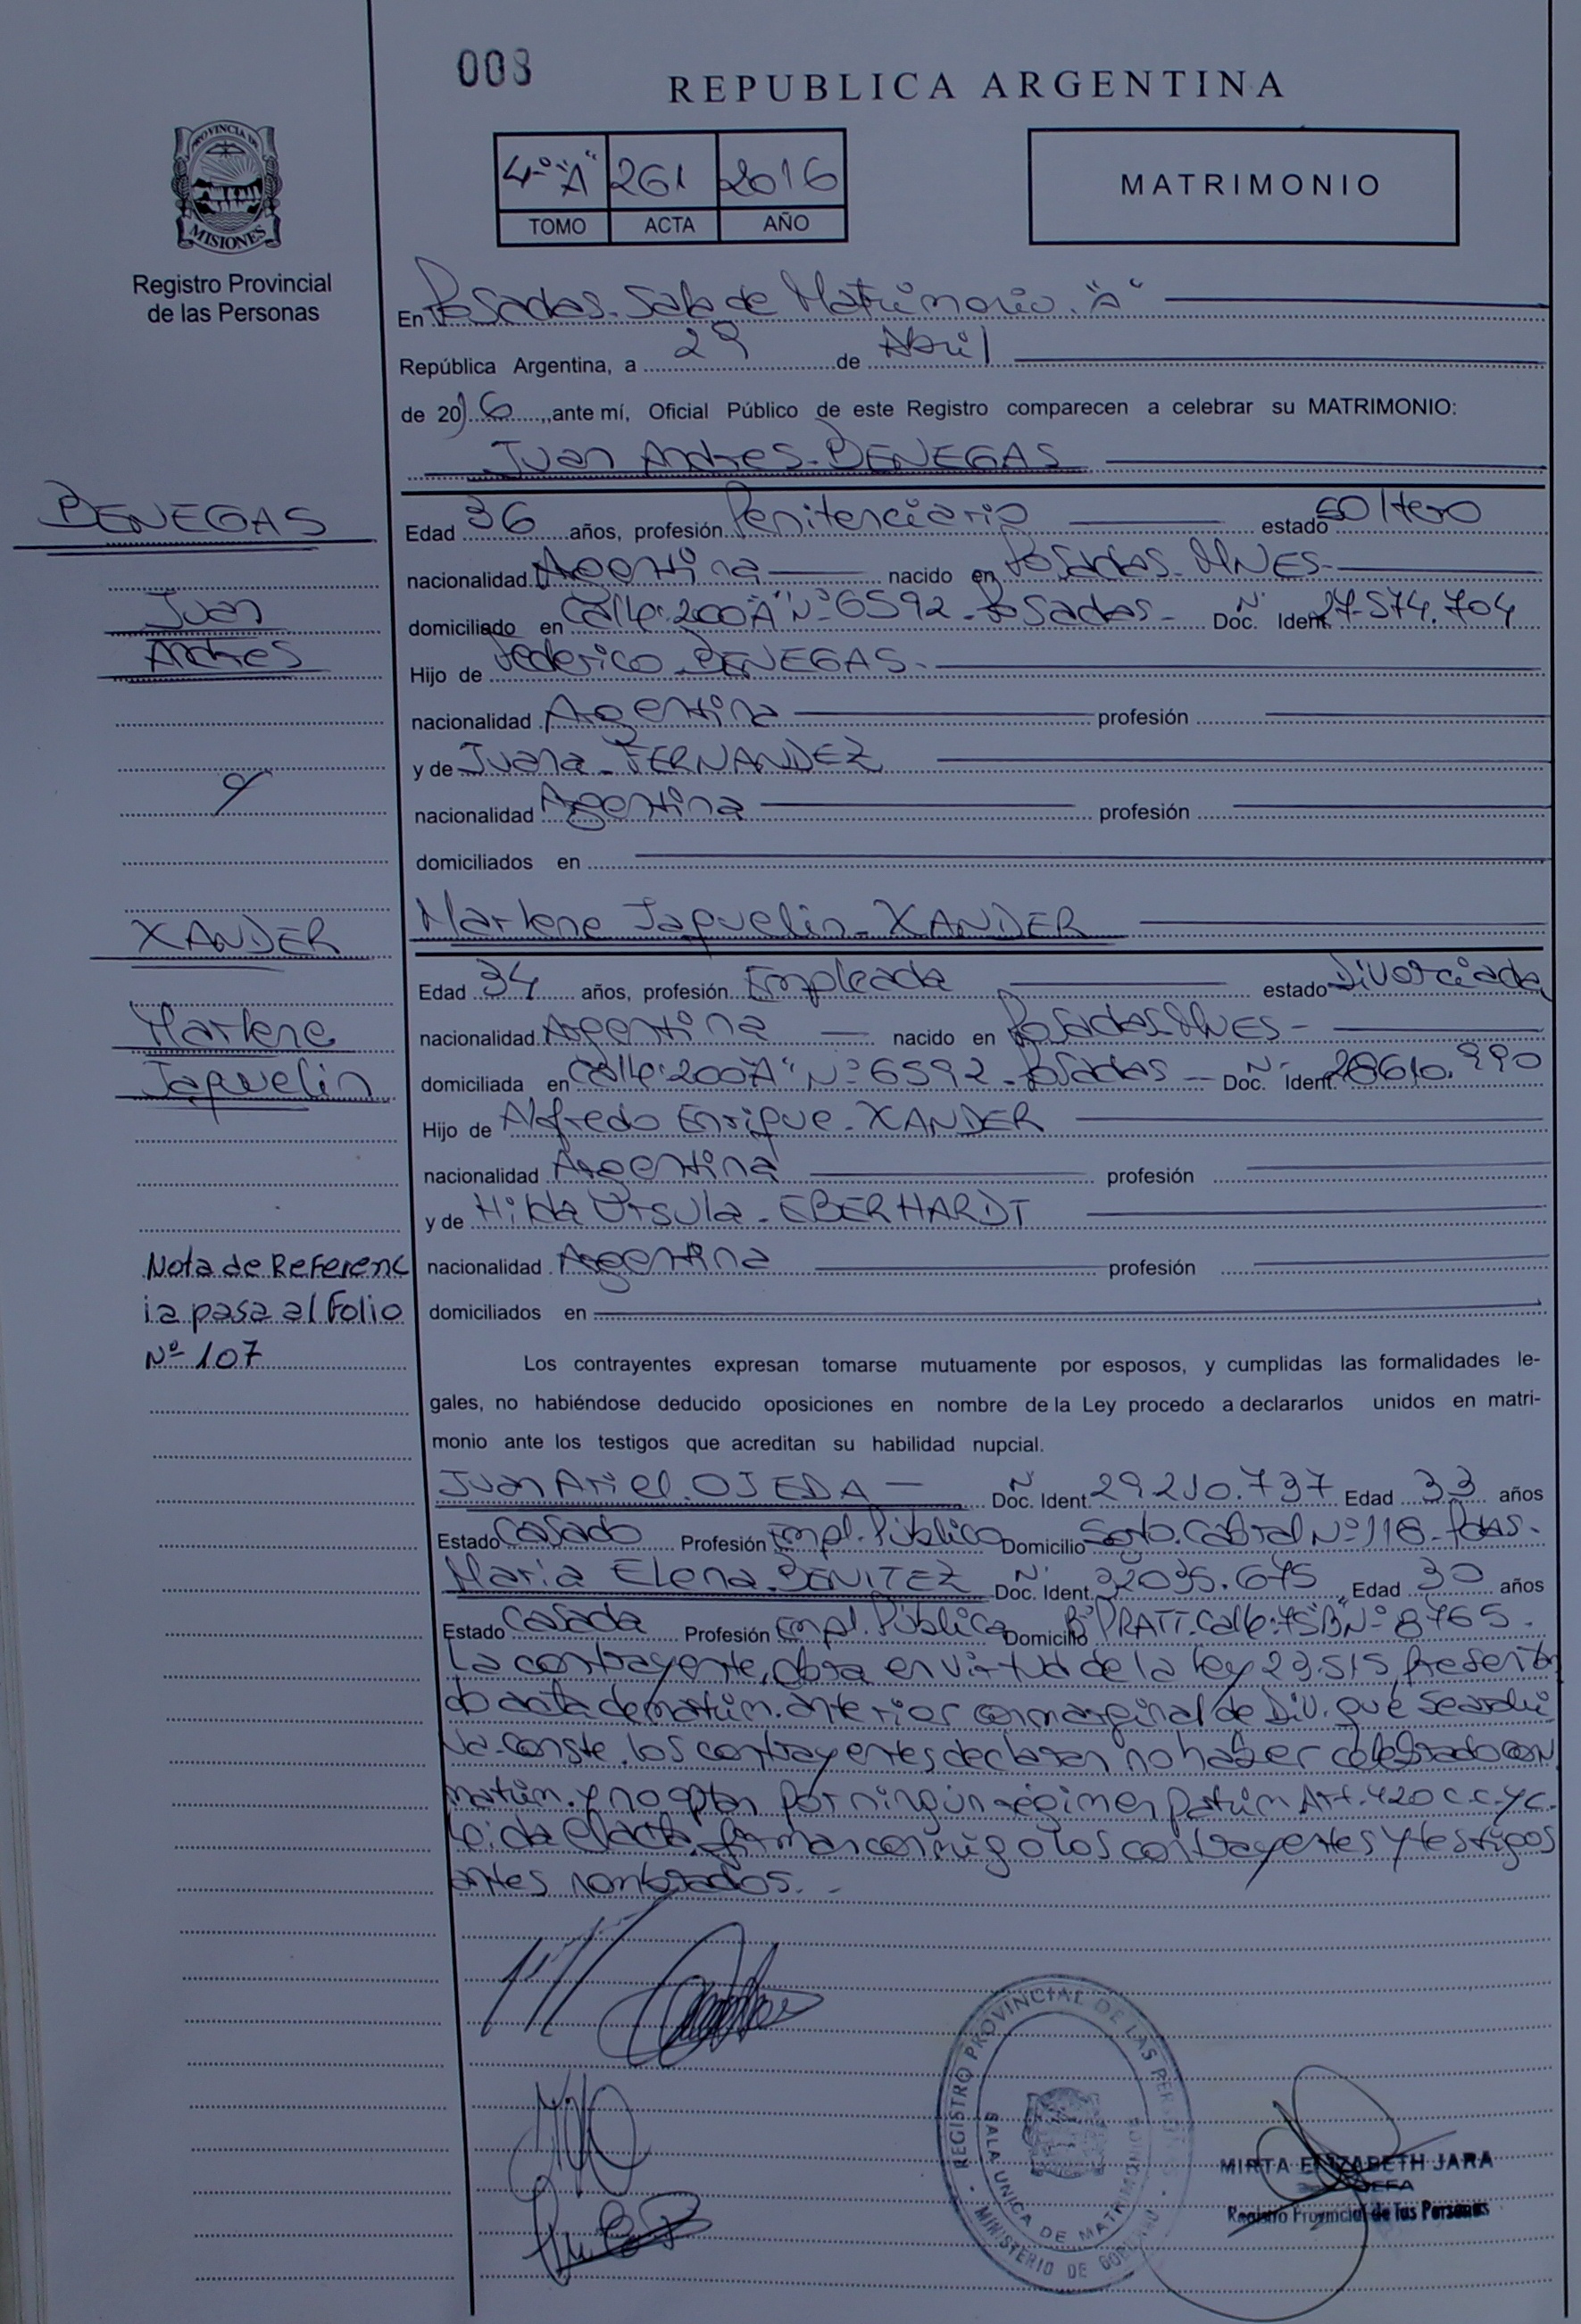 008
REPUBLICA ARGENTINA
PROVINCIA DE
MISIONES
Registro Provincial
de las Personas
4º "A" 261 2016
TOMO ACTA AÑO
MATRIMONIO
En Posadas. Sala de Matrimonio. "A"
República Argentina, a 29 de Abril
de 2016, ante mí, Oficial Público de este Registro comparecen a celebrar su MATRIMONIO:
Juan Andres. BENEGAS
BENEGAS
Juan
Andres
y
Edad 36 años, profesión Penitenciario estado Soltero
nacionalidad Argentina nacido en Posadas. MNES.
domiciliado en Calle: 200"A" Nº 6592. Posadas. Doc. Ident. Nº 27.574.704
Hijo de Federico BENEGAS.
nacionalidad Argentina profesión
y de Juana. FERNANDEZ
nacionalidad Argentina profesión
domiciliados en
XANDER
Marlene
Jaquelin
Marlene Jaquelin. XANDER
Edad 34 años, profesión Empleada estado Divorciada
nacionalidad Argentina nacido en Posadas. MNES.
domiciliada en Calle: 200"A" Nº 6592. Posadas Doc. Ident. Nº 28610.990
Hijo de Alfredo Enrique. XANDER
nacionalidad Argentina profesión
y de Hilda Ursula. EBERHARDT
nacionalidad Argentina profesión
domiciliados en
Nota de Referenc
ia pasa al Folio
Nº 107
Los contrayentes expresan tomarse mutuamente por esposos, y cumplidas las formalidades le-
gales, no habiéndose deducido oposiciones en nombre de la Ley procedo a declararlos unidos en matri-
monio ante los testigos que acreditan su habilidad nupcial.
Juan Ariel. OJEDA Doc. Ident. Nº 29210.737 Edad 33 años
Estado Casado Profesión Empl. Público Domicilio Sgto. Cabral Nº 118. Pdas.
Maria Elena. BENITEZ Doc. Ident. Nº 32035.675 Edad 30 años
Estado Casada Profesión Empl. Pública Domicilio Bº PRATT. Calle: 75"B" Nº 8765.
La contrayente, obra en virtud de la ley 23.515, presentan
do acta de matrim. anterior con marginal de Div. que se archi
va. Conste. los contrayentes declaran no haber celebrado con
matrim. y no optan por ningún régimen patrim Art. 420 C.C. y C.
Leida el acta, firman conmigo los contrayentes y testigos
antes nombrados.
REGISTRO PROVINCIAL DE LAS PERSONAS
SALA UNICA DE MATRIMONIOS
MINISTERIO DE GOBIERNO
MIRTA ELIZABETH JARA
JEFA
Registro Provincial de las Personas